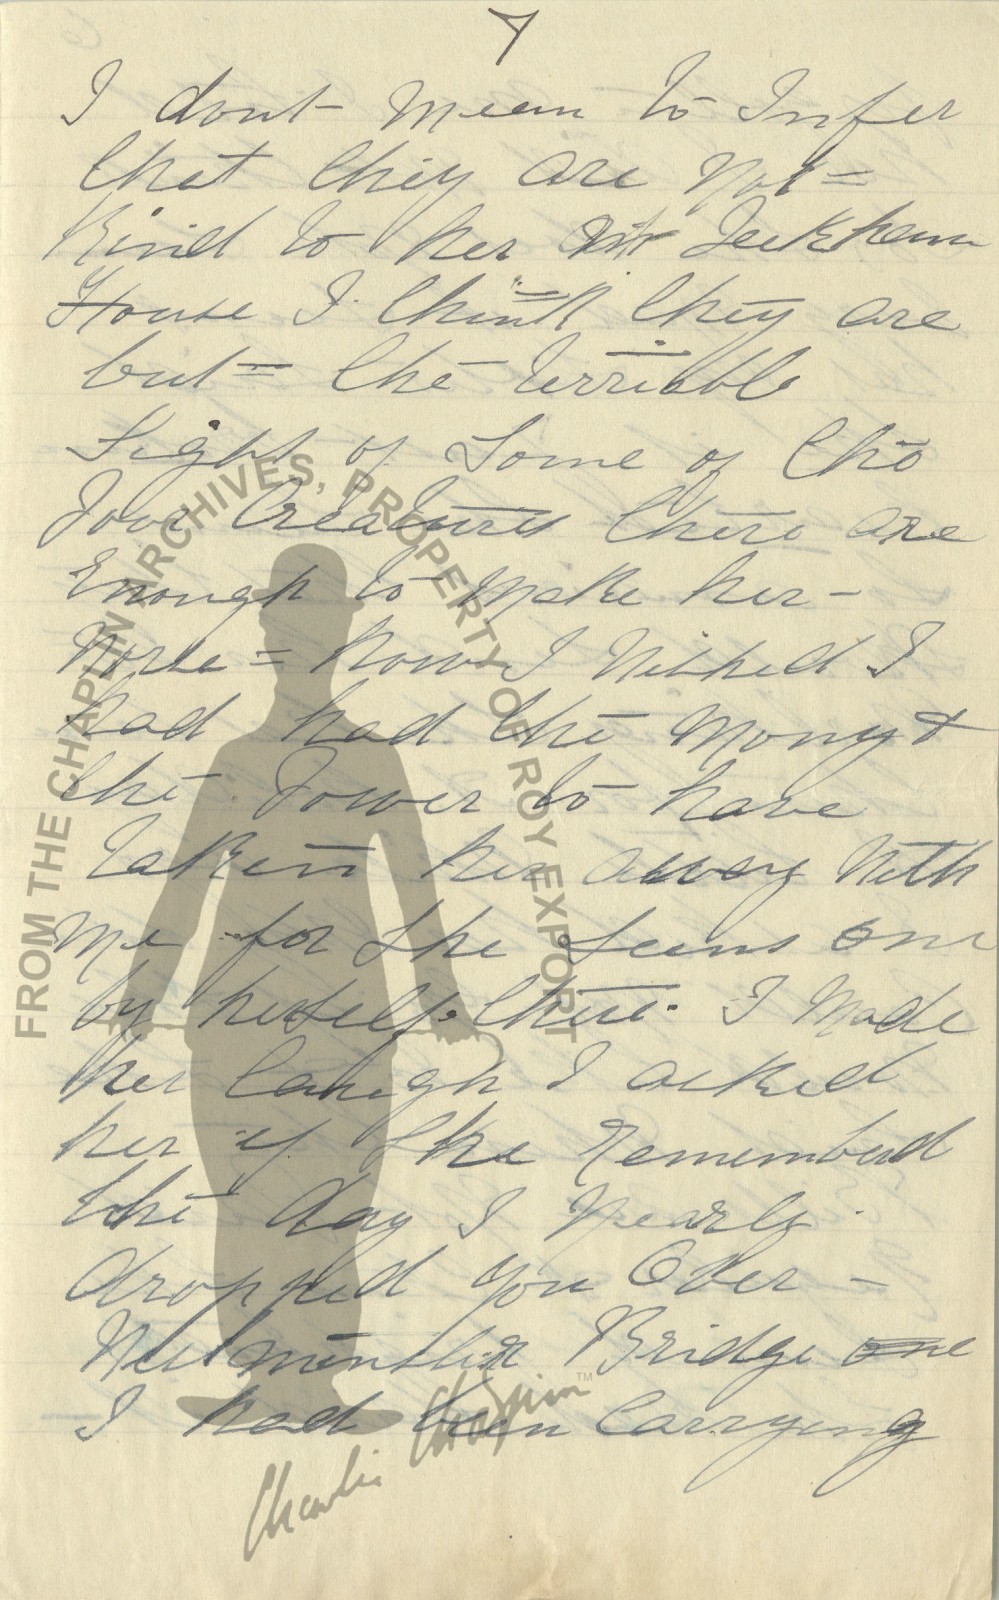 7
I dont mean to Infer
that they are Not =
Kind to her at Peckham
House I think they are
but = the terrible
Sight of Some of the
Poor Creatures there are
Enough to Make her -
Worse = how I Wished I
had had the Mony &
the Power to have
taken her away With
Me for She Seems one
by herself there. I Made
her laugh I asked
her if She Remembered
the day I Nearly
dropped you Over -
Westminster Bridge one
I had been Carrying
FROM THE CHAPLIN ARCHIVES, PROPERTY OF ROY EXPORT
Charlie Chaplin™